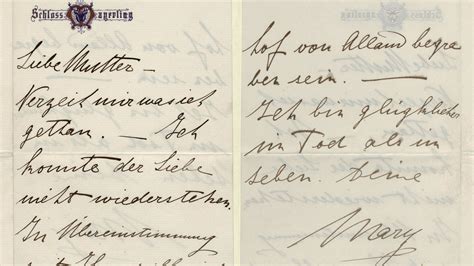 Schloss Mayerling
Liebe Mutter –
Verzeit mir was ich
gethan. – Ich
konnte der Liebe
nicht wiederstehen.
In Übereinstimmung
mit Ihm
hof von Alland begra
ben sein. –
Ich bin glücklicher
im Tod als im
Leben. Deine
Mary